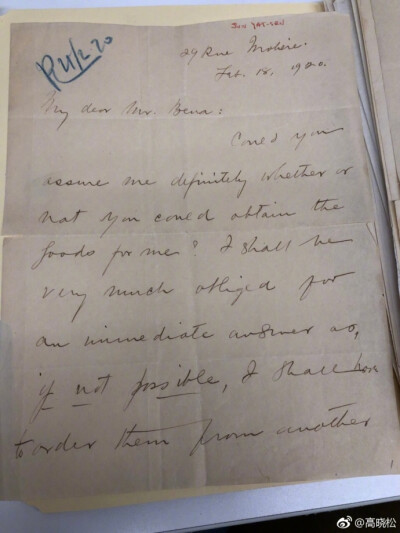 Sun Yat-sen
29 Rue Molière.
Feb. 18, 1920.
My dear Mr.
Could you
assure me definitely whether or
not you could obtain the
goods for me? I shall be
very much obliged for
an immediate answer as,
if not possible, I shall have
to order them from another
@高晓松